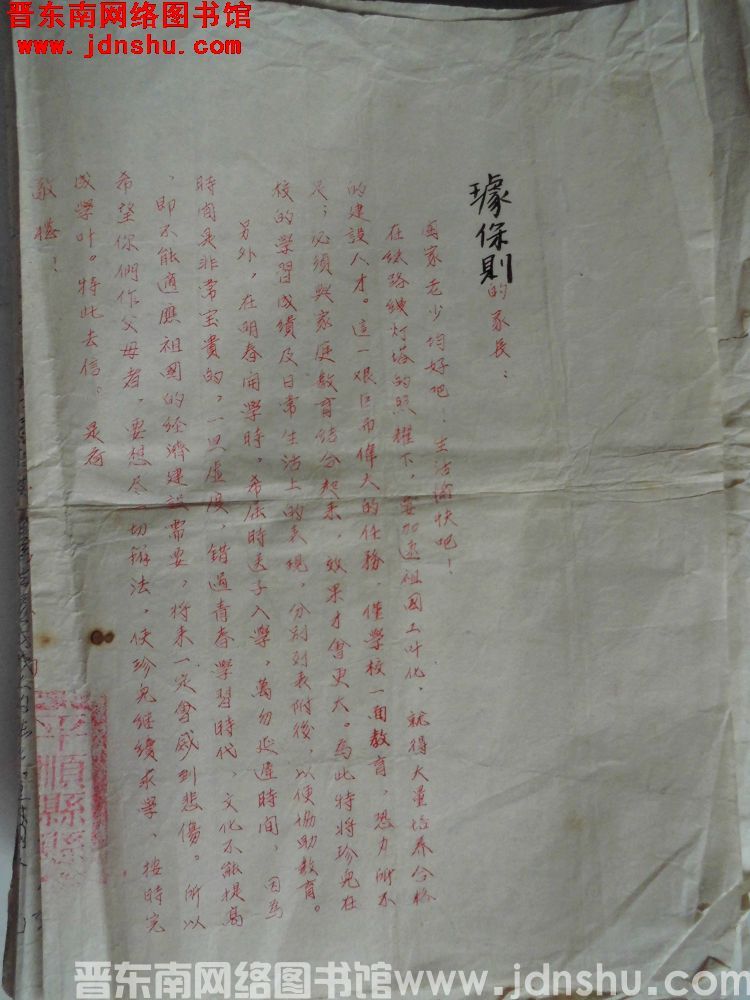 晋东南网络图书馆
www.jdnshu.com
璩保則的家長：
闔家老少均好吧！生活愉快吧！
在総路綫灯塔的照耀下，要加速祖國工叶化，就得大量培养合格
的建設人才。這一艰巨而偉大的任務，僅學校一面教育，恐力所不
足；必須與家庭教育結合起来，效果才會更大。為此特將珍兒在
校的學習成績及日常生活上的表現，分別列表附後，以便協助教育。
另外，在明春開學時，希屆時送子入學，萬勿延遲時间，因為
時间是非常宝貴的，一旦虚度，錯過青春學習時代，文化不能提高
，即不能適應祖國的経濟建設需要，将来一定會感到悲傷。所以
希望你們作父母者，要想尽一切辦法，使珍兒継續求學，按時完
成學叶。特此去信。是荷
敬禮！
平順縣
晋东南网络图书馆www.jdnshu.com